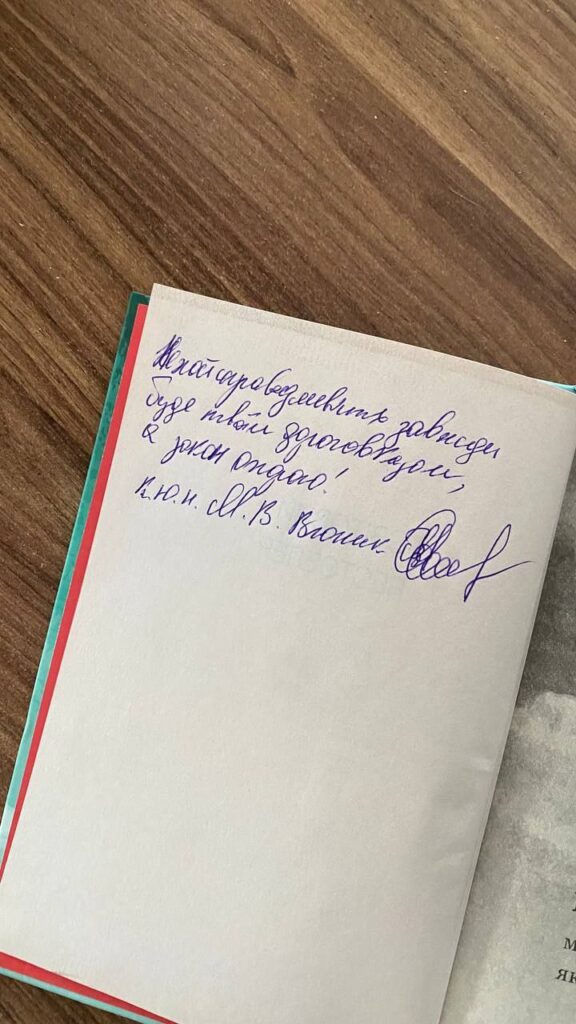 Нехай справедливість завжди
буде твоїм дороговказом,
а закон опорою!
к.ю.н. М.В.
м
як